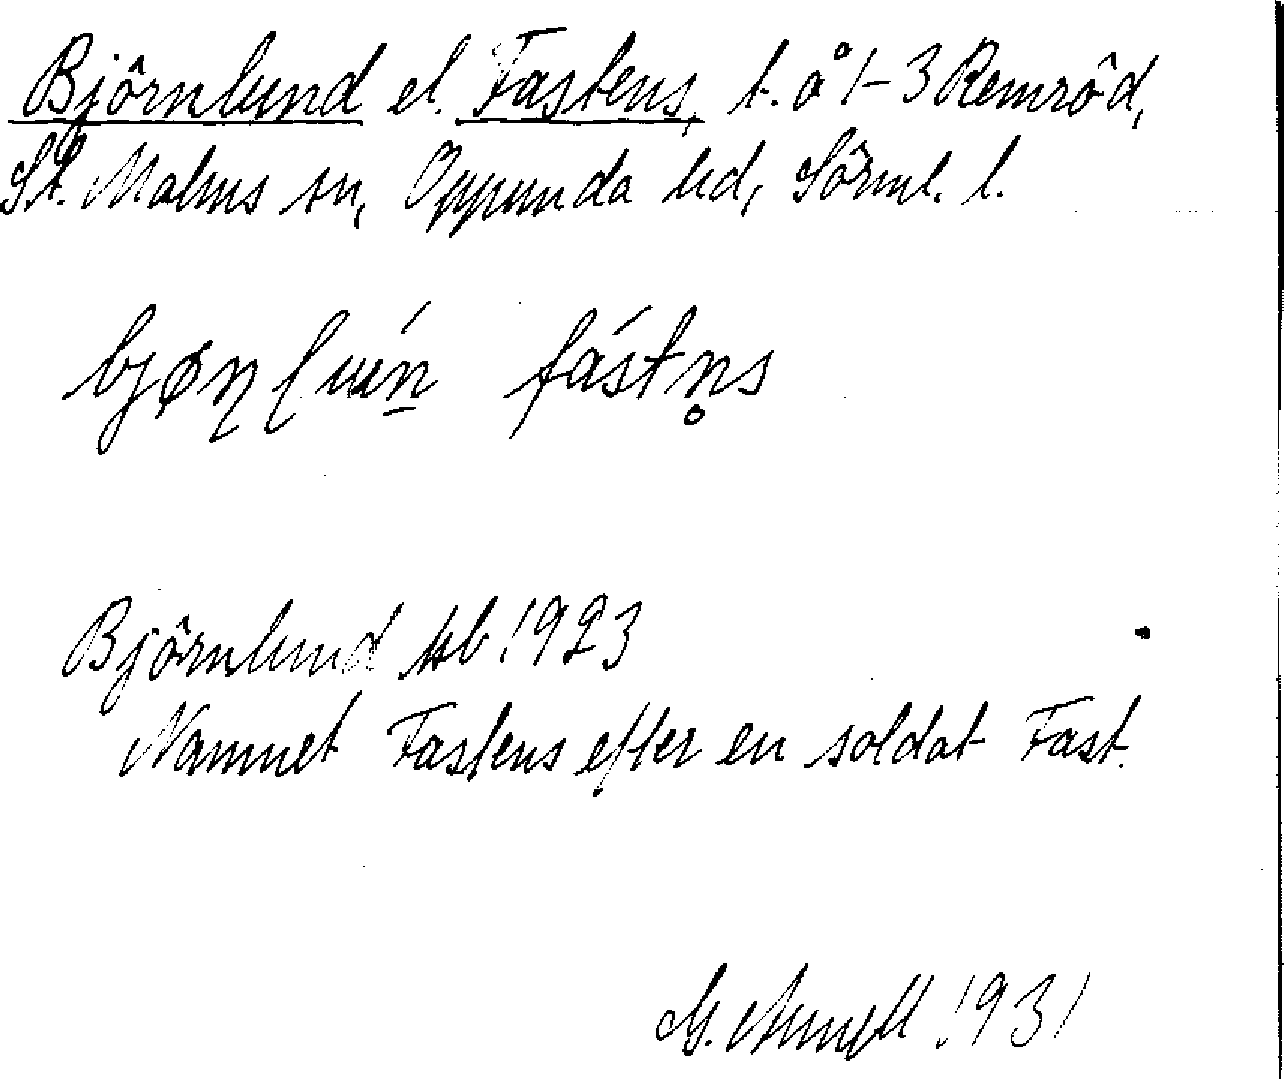 Björnlund el. Fastens, t. å 1-3 Remröd,
St. Malms sn, Oppunda hd, Sörml. l.
fástn̥s
Björnlund Jsb 1923
Namnet Fastens efter en soldat Fast.
1931